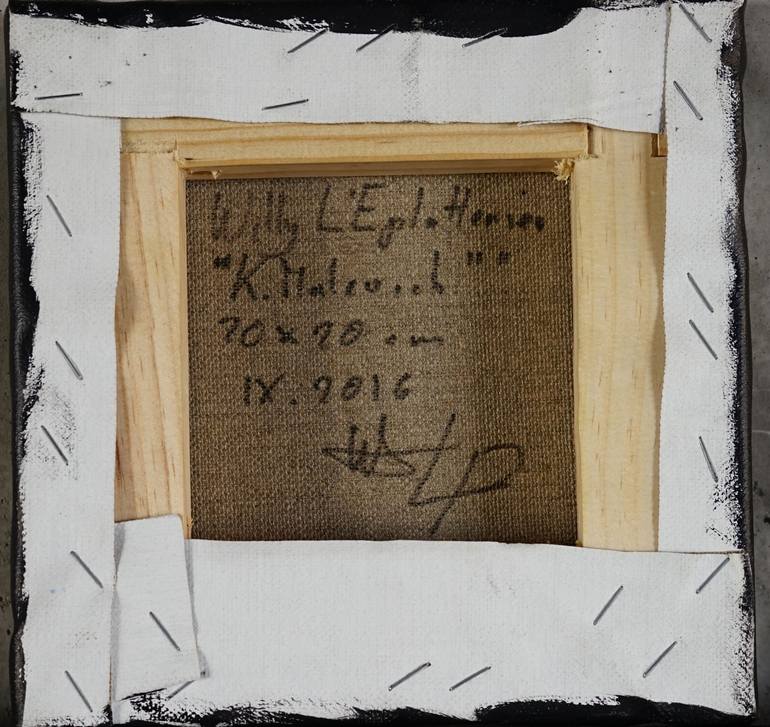 Willy L'Eplattenier
"K. Malevich" "
20 x 20 cm
IX. 2016